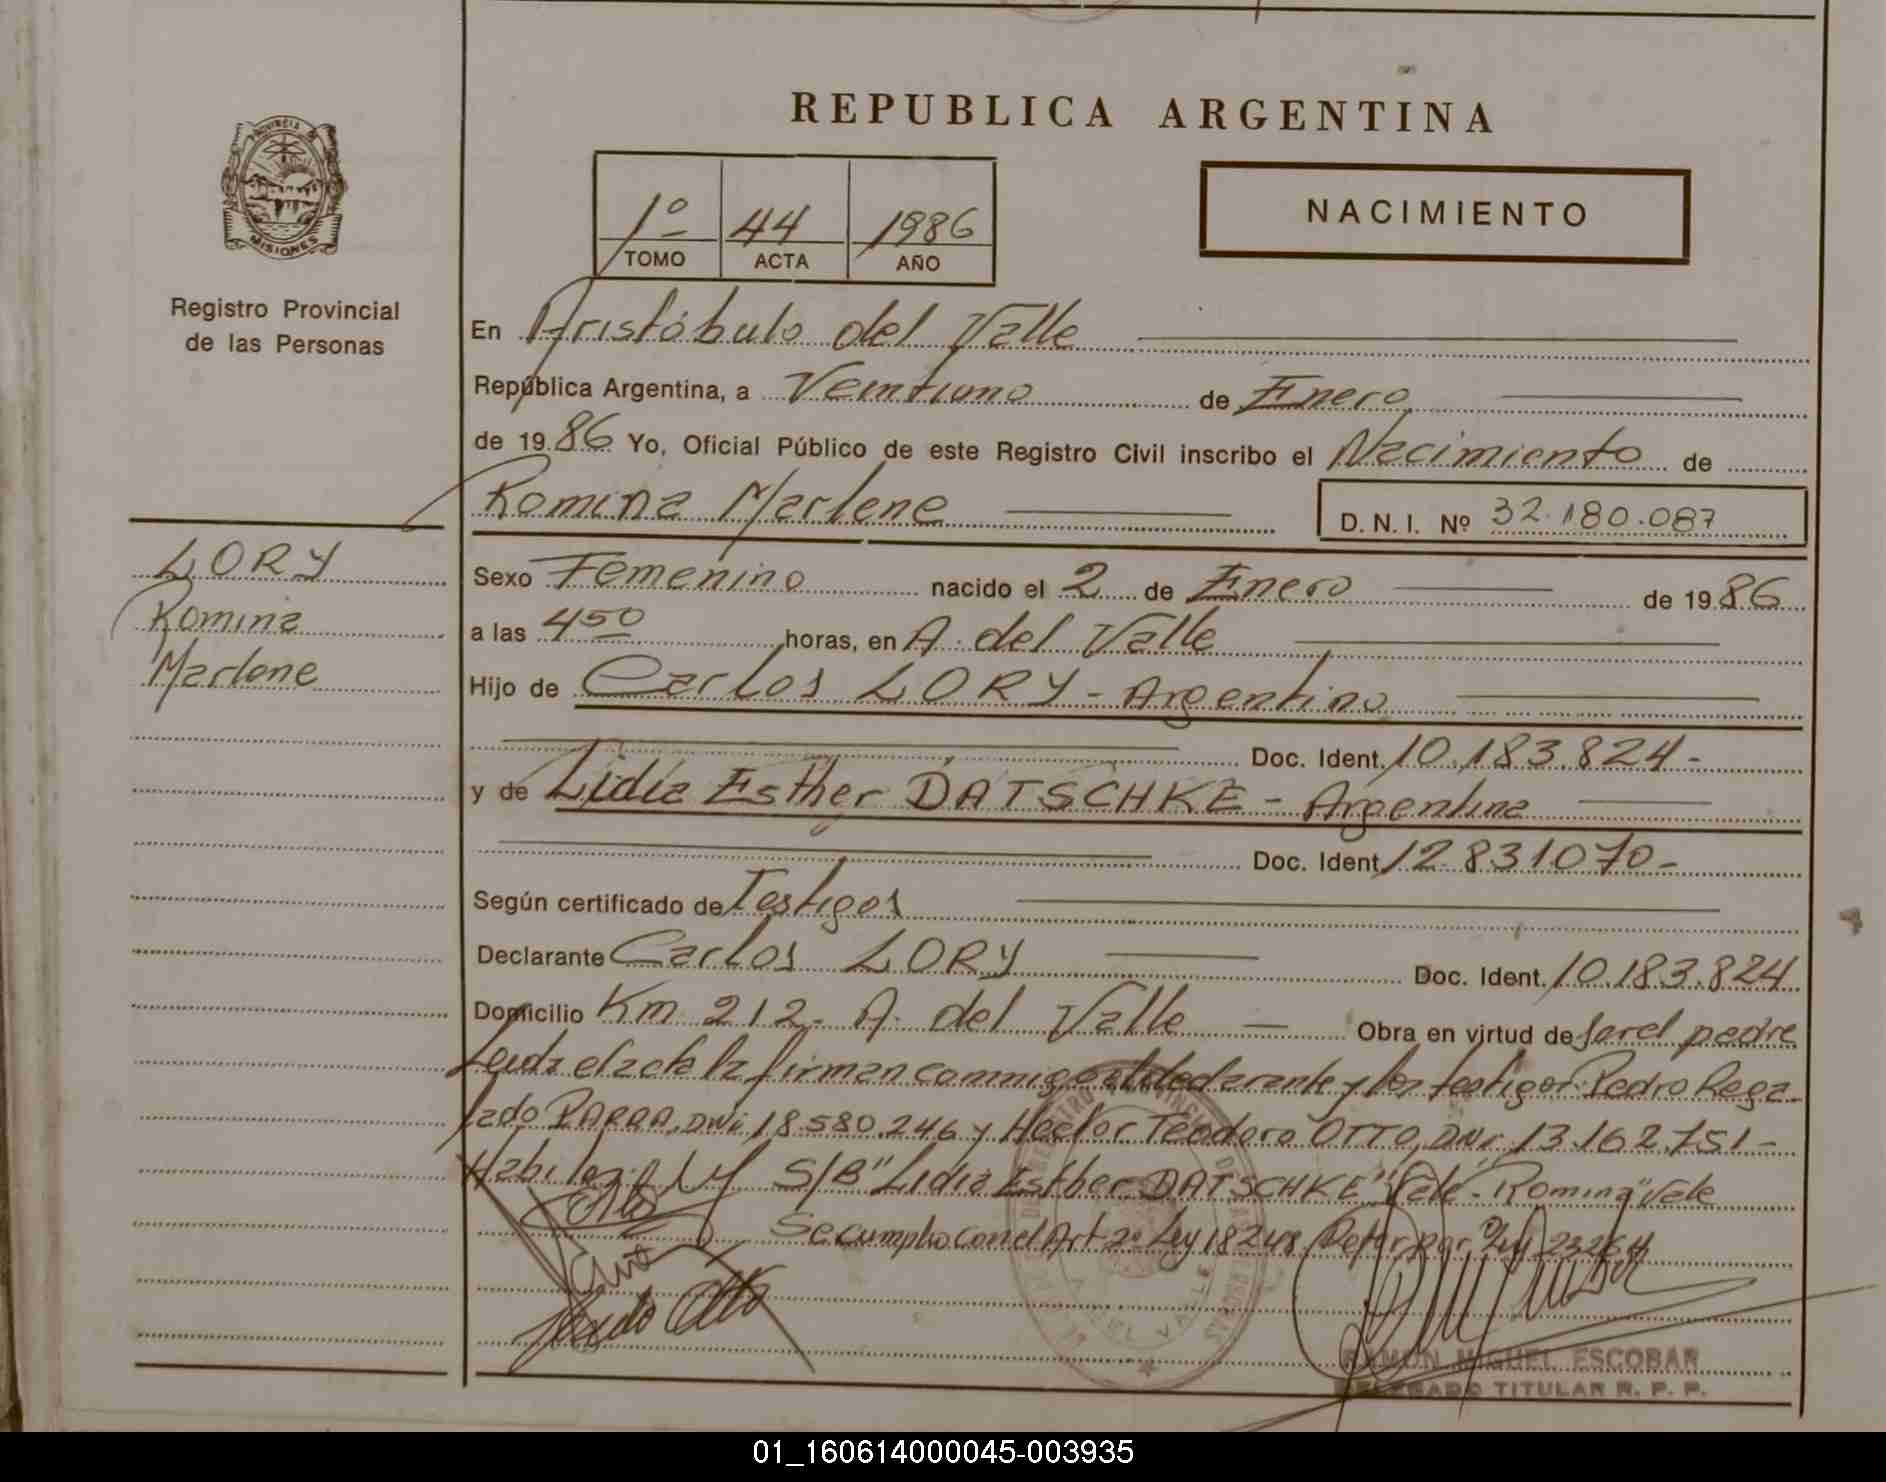 REPUBLICA ARGENTINA
PROVINCIA DE
MISIONES
Registro Provincial
de las Personas
1º 44 1986
TOMO ACTA AÑO
NACIMIENTO
En Aristóbulo del Valle
República Argentina, a Veintiuno de Enero
de 1986 Yo, Oficial Público de este Registro Civil inscribo el Nacimiento de
Romina Marlene D.N.I. Nº 32.180.087
LORY
Romina
Marlene
Sexo Femenino nacido el 2 de Enero de 1986
a las 4 50 horas, en A. del Valle
Hijo de Carlos LORY - Argentino
Doc. Ident. 10.183.824-
y de Lidia Esther DATSCHKE - Argentina
Doc. Ident. 12.831070-
Según certificado de Testigos
Declarante Carlos LORY Doc. Ident. 10.183.824
Domicilio Km 212- A. del Valle Obra en virtud de ser el padre
Leida el acta la firman conmigo el declarante y los testigos: Pedro Rega-
lado PARRA, DNi 18.580.246 y Hector Teodoro OTTO, DNi 13.162.751-
S/B "Lidia Esther DATSCHKE" Vale- "Romina" Vale
Se cumplio con el Art 2º Ley 18248 Ley 23264
RAMON MIGUEL ESCOBAR
DELEGADO TITULAR R. P. P.
01_160614000045-003935